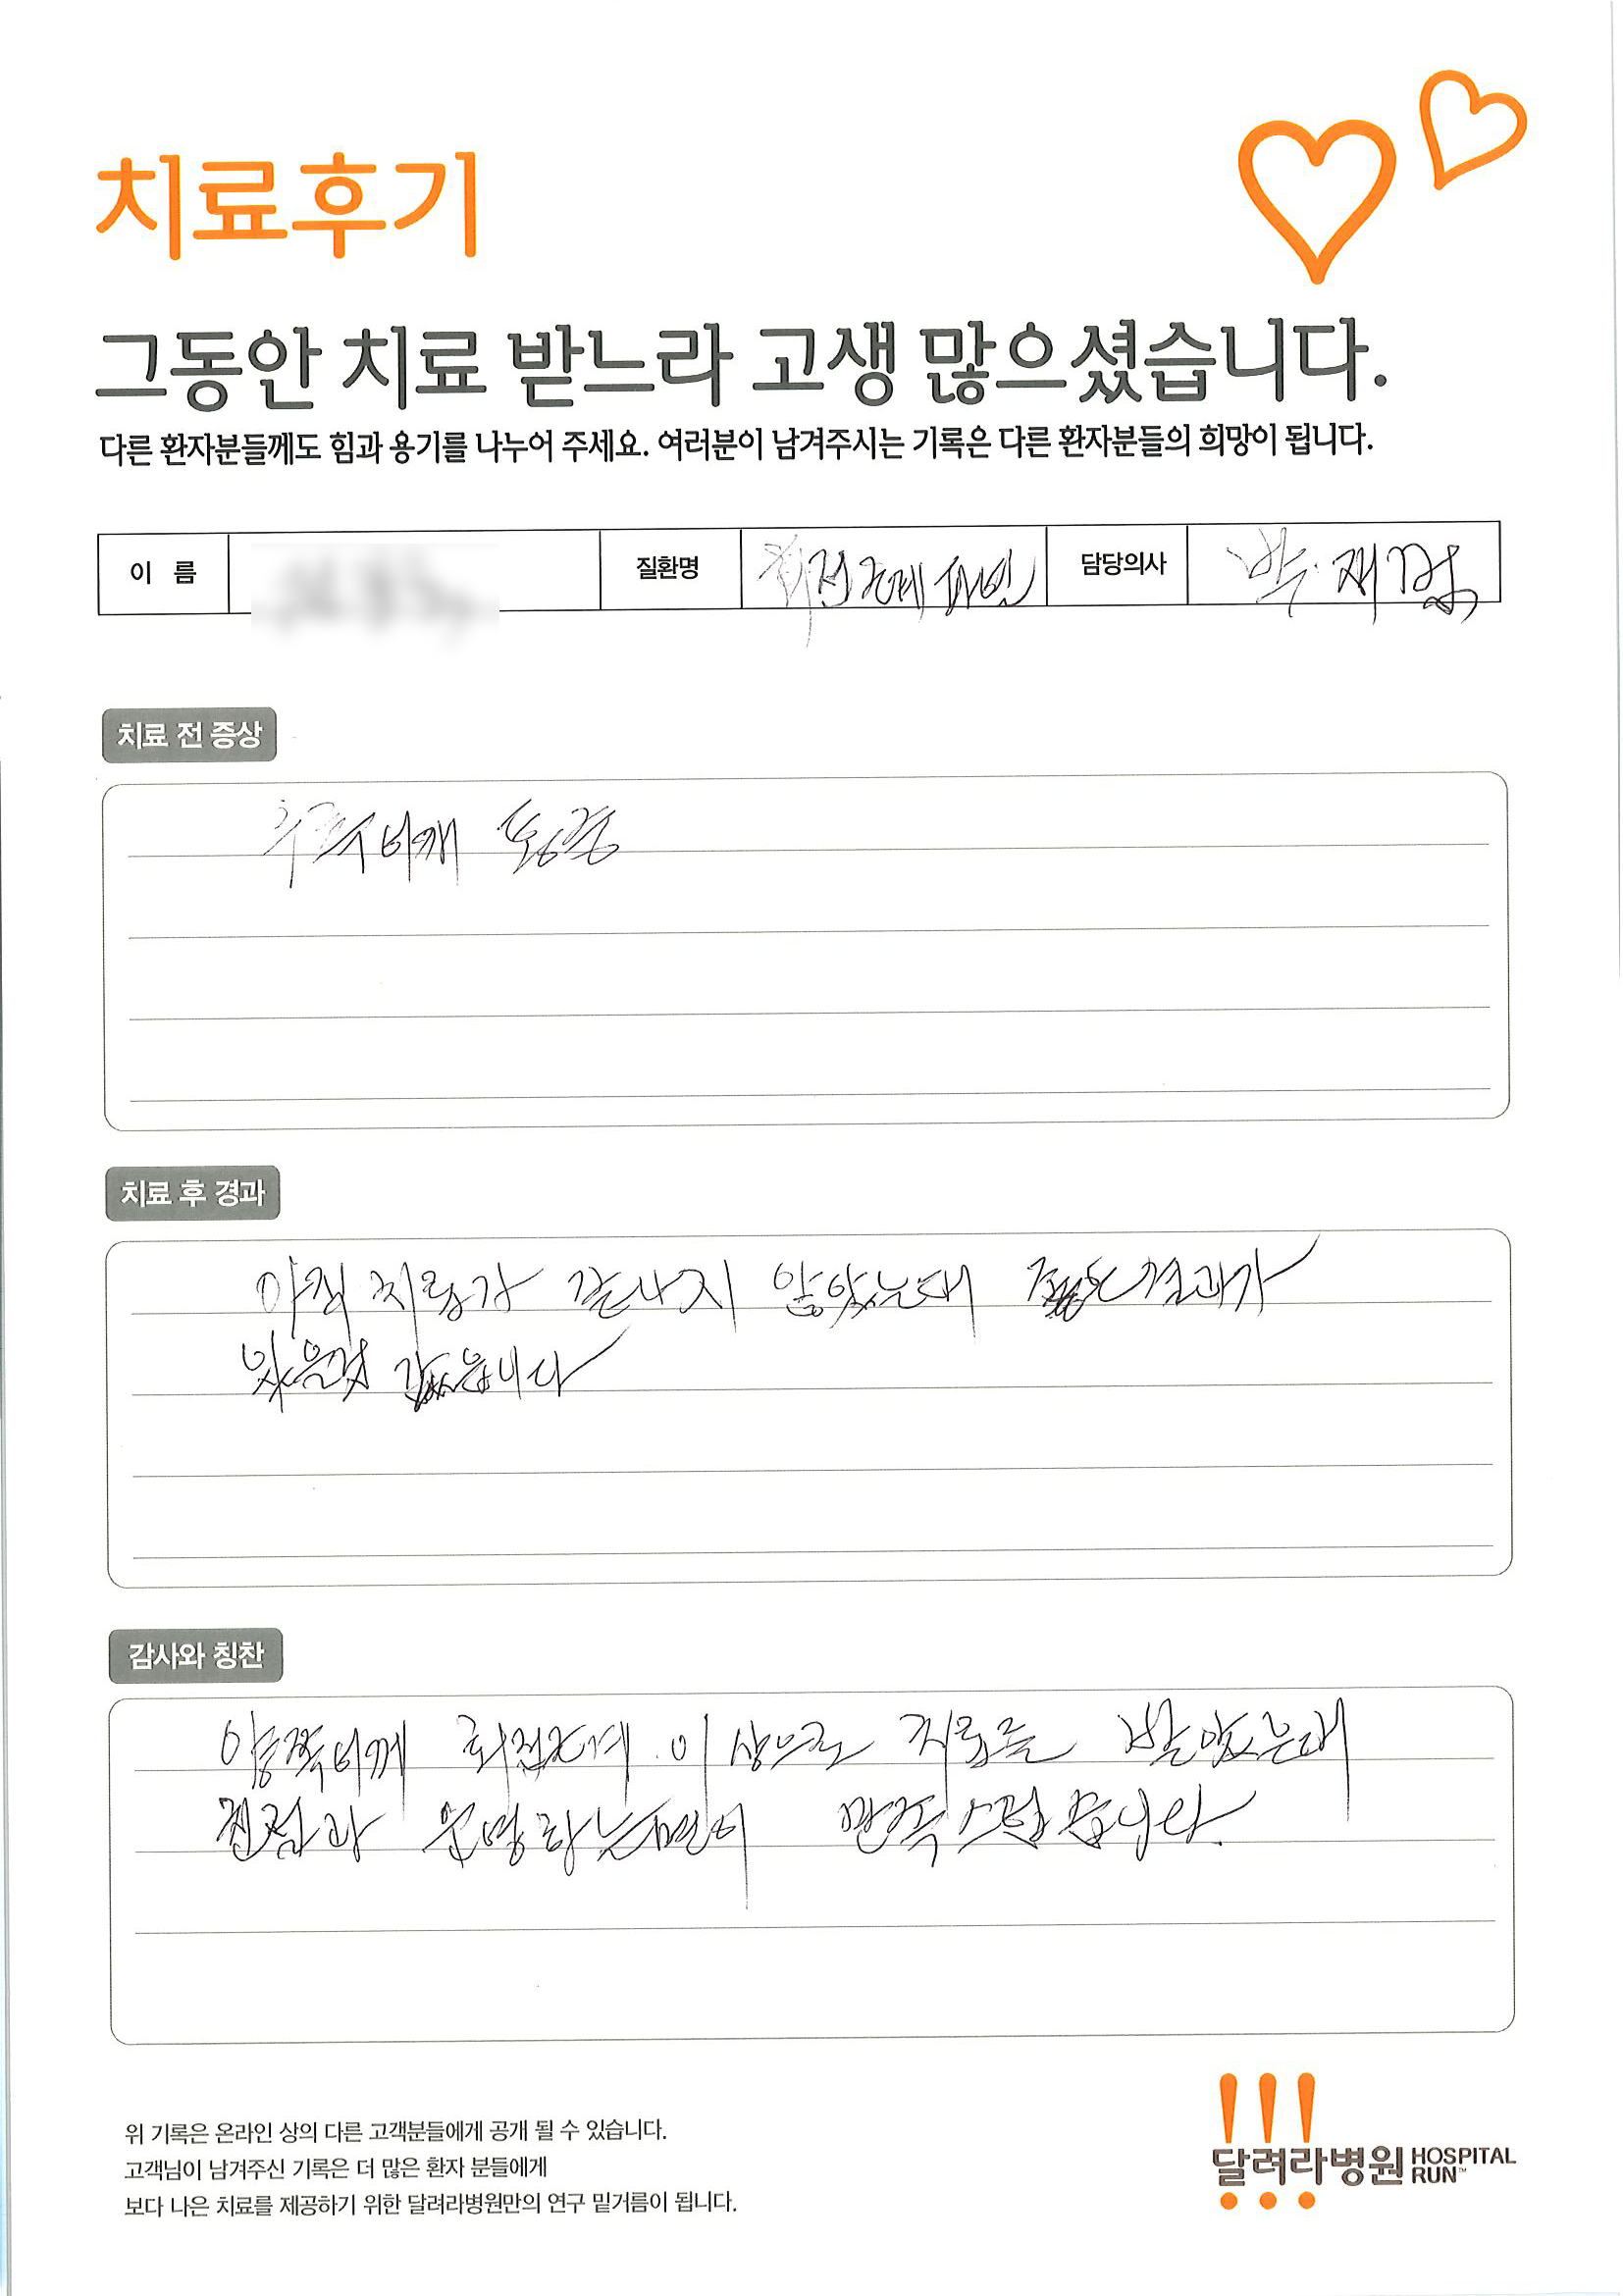 치료후기
그동안 치료 받느라 고생 많으셨습니다.
다른 환자분들께도 힘과 용기를 나누어 주세요. 여러분이 남겨주시는 기록은 다른 환자분들의 희망이 됩니다.
이 름 질환명 회전근개 파열 담당의사 박재범
치료 전 증상
어깨 통증
치료 후 경과
아직 치료가 끝나지 않았는대 좋은 결과가
있은것 같읍니다
감사와 칭찬
양쪽어깨 회전근개 이상으로 치료를 받았는대
친절과 만족스럽습니다.
위 기록은 온라인 상의 다른 고객분들에게 공개 될 수 있습니다.
고객님이 남겨주신 기록은 더 많은 환자 분들에게
보다 나은 치료를 제공하기 위한 달려라병원만의 연구 밑거름이 됩니다.
달려라병원 HOSPITAL RUN™